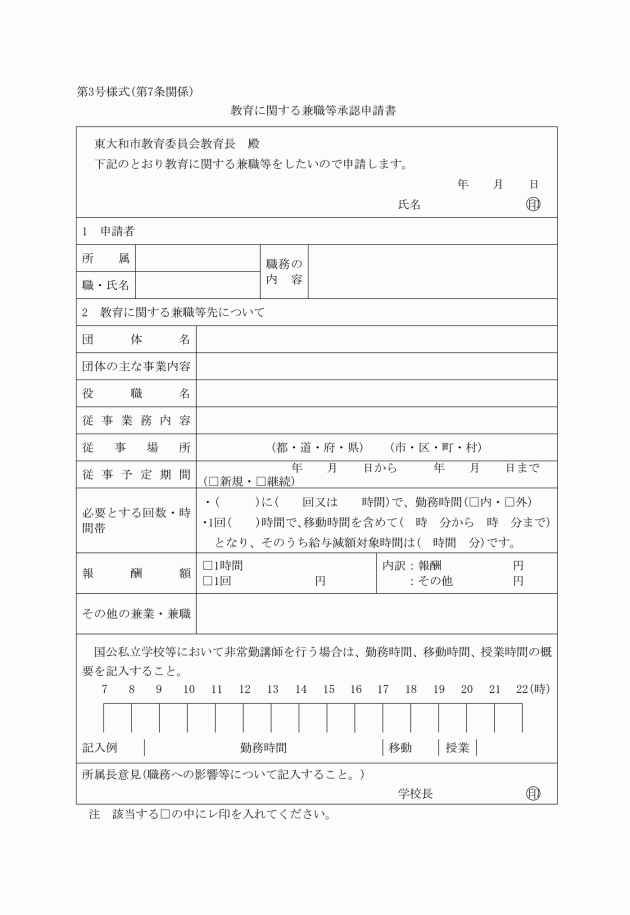 第3号様式(第7条関係)
教育に関する兼職等承認申請書
東大和市教育委員会教育長　殿
下記のとおり教育に関する兼職等をしたいので申請します。
年　　月　　日
氏名　　　　　　　　　㊞
1　申請者
所　　属
職務の
内　容
職・氏名
2　教育に関する兼職等先について
団　　体　　名
団体の主な事業内容
役　　職　　名
従 事 業 務 内 容
従　事　場　所　　　　(都・道・府・県)　　(市・区・町・村)
従 事 予 定 期 間
年　　月　　日から　　　年　　月　　日まで
(□新規・□継続)
必要とする回数・時
間帯
・(　　　)に(　　回又は　　時間)で、勤務時間(□内・□外)
・1回(　　)時間で、移動時間を含めて(　時　分から　時　分まで)
となり、そのうち給与減額対象時間は(　時間　分)です。
報　　酬　　額
□1時間
□1回　　　　　　　円
内訳：報酬　　　　　　円
：その他　　　　　円
その他の兼業・兼職
国公私立学校等において非常勤講師を行う場合は、勤務時間、移動時間、授業時間の概
要を記入すること。
7　8　9　10　11　12　13　14　15　16　17　18　19　20　21　22(時)
記入例　　勤務時間　　移動　　授業
所属長意見(職務への影響等について記入すること。)
学校長　　　　　　　　㊞
注　該当する□の中にレ印を入れてください。